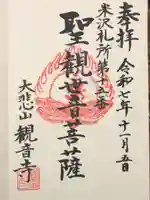 奉拝
令和七年十一月五日
米沢札所第十五番
聖観世音菩薩
大悲山
観音寺